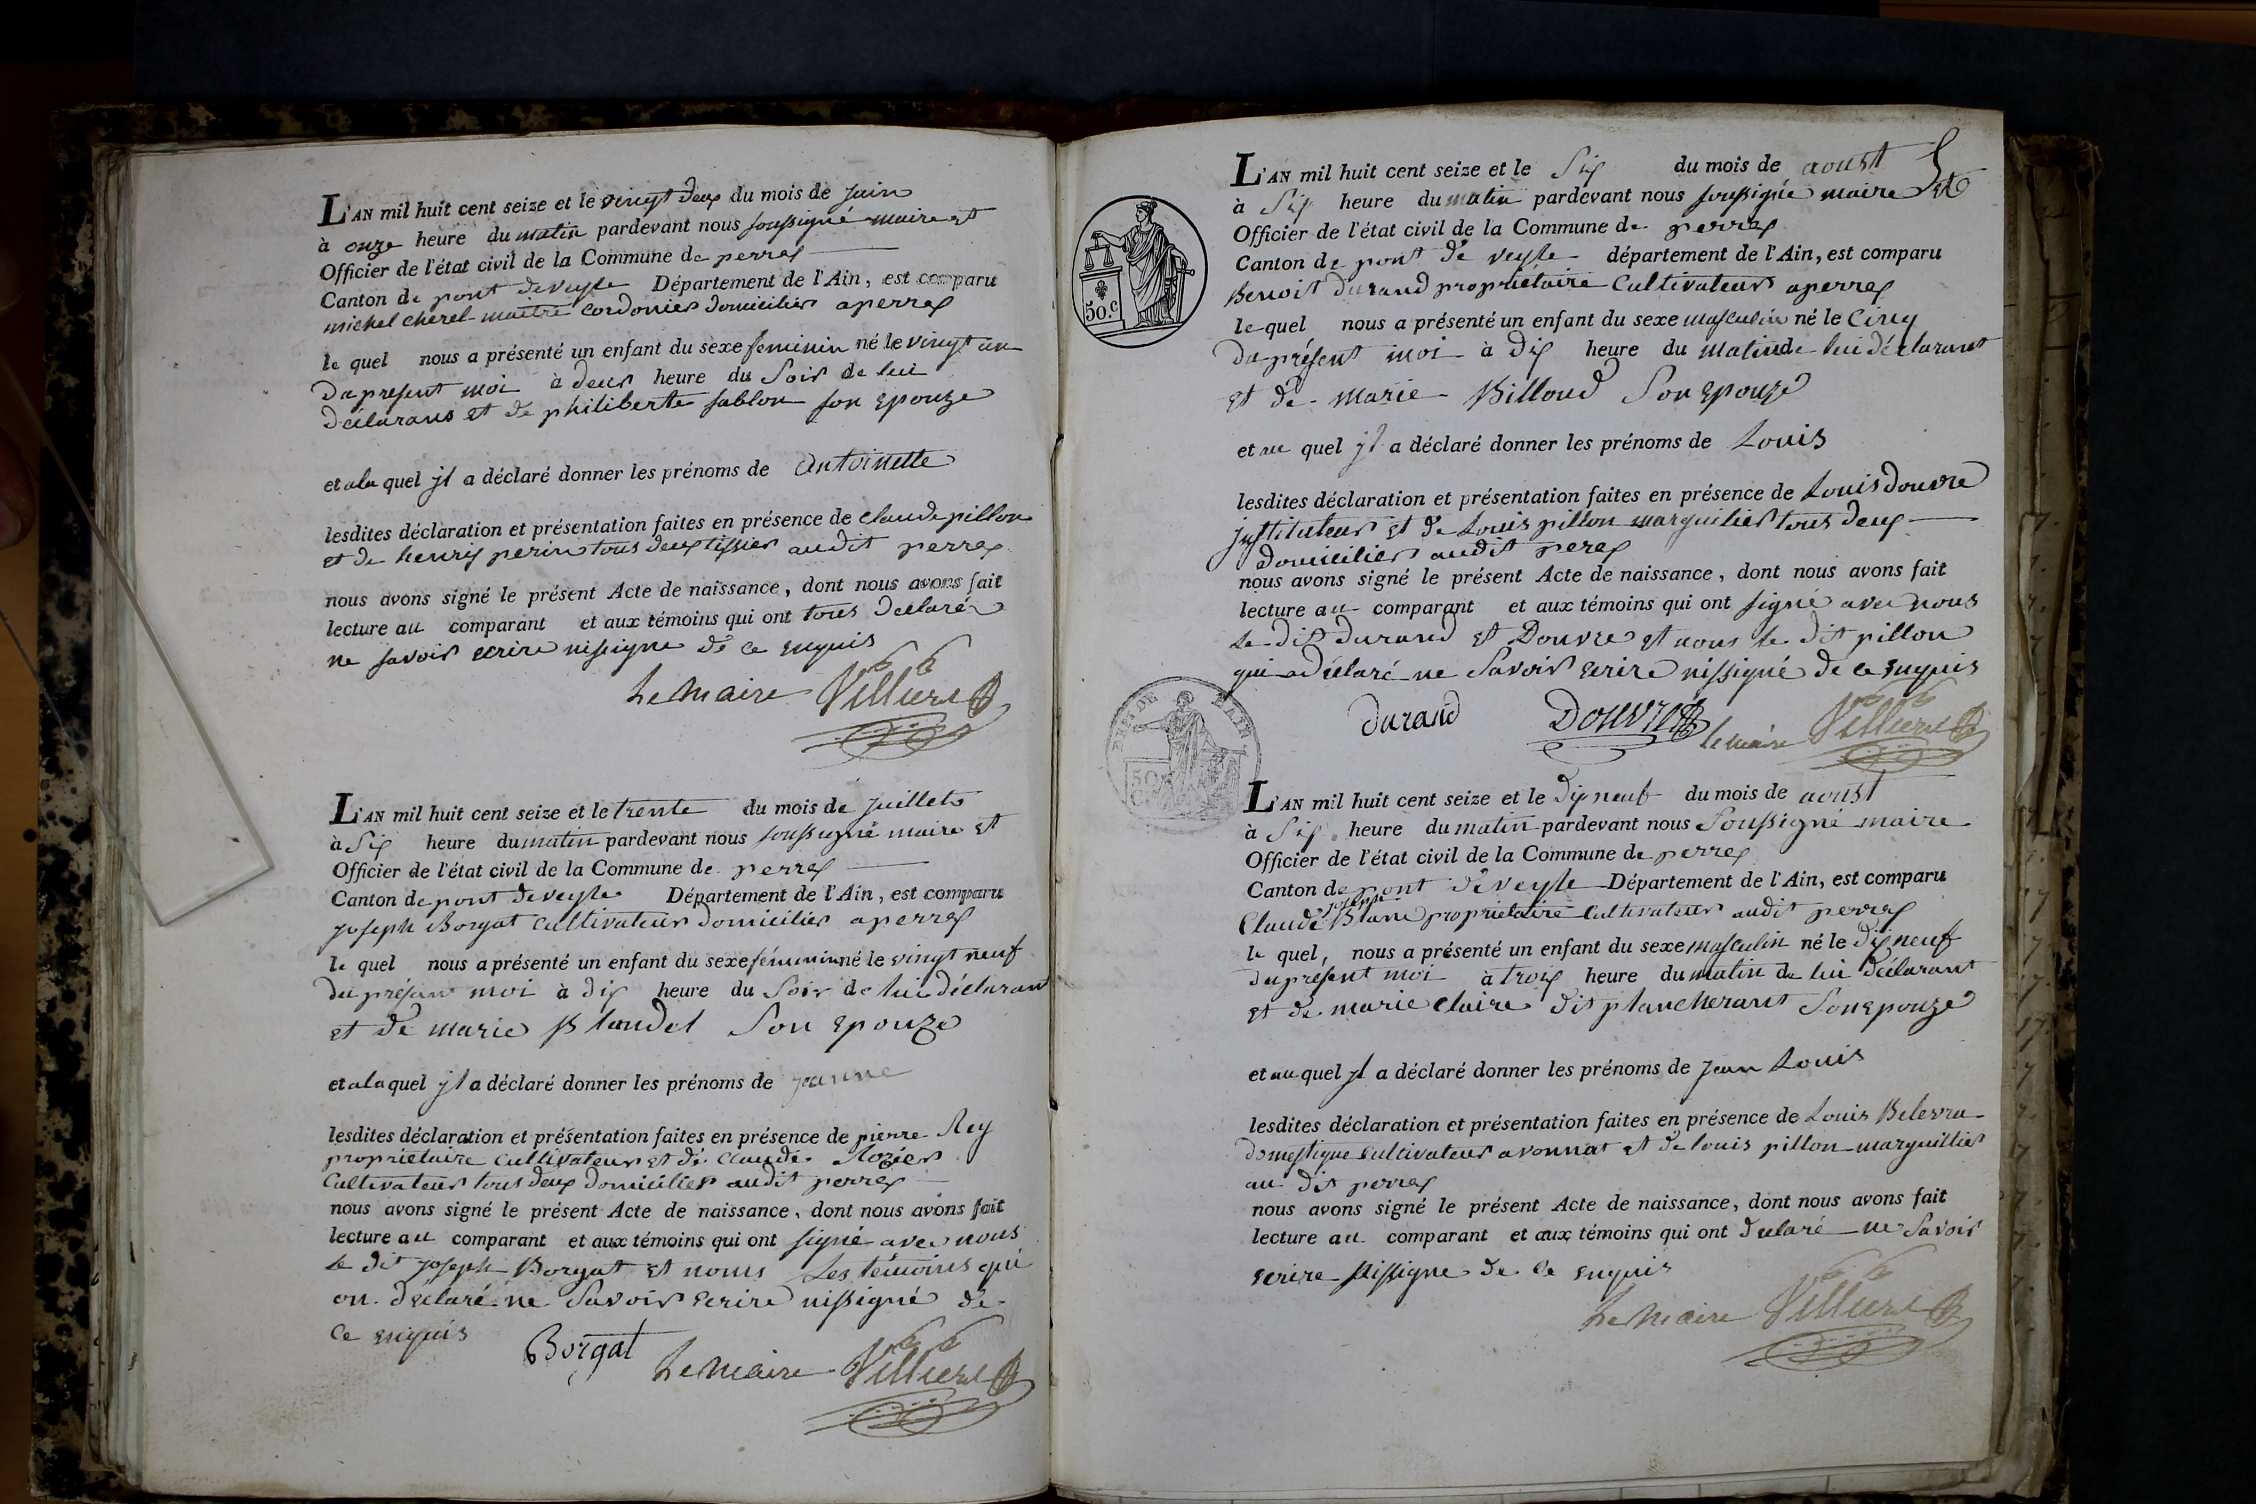 L'AN mil huit cent seize et le vingt deux du mois de juin
à onze heure du matin pardevant nous soussigné maire et
Officier de l'état civil de la Commune de perrex
Canton de pont de veyle Département de l'Ain, est comparu
michel cherel maitre cordonier domicilier a perrex
le quel nous a présenté un enfant du sexe feminin né le vingt un
du present moi à deux heure du Soir de lui
déclarans et de philiberte sablon son epouze
et ala quel jl a déclaré donner les prénoms de antoinette
lesdites déclaration et présentation faites en présence de claude pillon
et de henrij perin tous deux tissier audit perrex
nous avons signé le présent Acte de naissance, dont nous avons fait
lecture au comparant et aux témoins qui ont tous declaré
ne savoir ecrire ni signe de ce enquis
Le Maire Villiere
L'AN mil huit cent seize et le trente du mois de juillet
à Six heure du matin pardevant nous soussigné maire et
Officier de l'état civil de la Commune de perrex
Canton de pont de veyle Département de l'Ain, est comparu
joseph Borgat cultivateur domicilier a perrex
le quel nous a présenté un enfant du sexe féminin né le vingt neuf
du présent moi à dix heure du Soir de lui déclarant
et de marie Blandet Son epouze
et ala quel jl a déclaré donner les prénoms de jeanne
lesdites déclaration et présentation faites en présence de pierre Rey
proprietaire cultivateur et de claude Rozier
Cultivateur tous deux domicilier audit perrex
nous avons signé le présent Acte de naissance, dont nous avons fait
lecture au comparant et aux témoins qui ont signé avec nous
le dit joseph Borgat et nonis Les témoins qui
on déclaré ne Savoir ecrire ni signé de
ce enquis
Borgat Le Maire Villiere
L'AN mil huit cent seize et le Six du mois de aoust
à Six heure du matin pardevant nous soussigné maire et
Officier de l'état civil de la Commune de perrex
Canton de pont de veyle département de l'Ain, est comparu
Benoit durand propriétaire Cultivateur a perrex
50.c
le quel nous a présenté un enfant du sexe masculin né le Cinq
du présent moi à dix heure du matin de lui déclarant
et de marie Billoud Son epouze
et au quel jl a déclaré donner les prénoms de Louis
lesdites déclaration et présentation faites en présence de Louis douvre
jnstituteur et de Louis pillon marguilier tous deux
domicilier audit perex
nous avons signé le présent Acte de naissance, dont nous avons fait
lecture au comparant et aux témoins qui ont signé avec nous
Le dit durand et Douvre et nous le dit pillon
qui a déclaré ne Savoir ecrire ni signé de ce enquis
durand Douvre le maire Villiere
L'AN mil huit cent seize et le dix neuf du mois de aoust
à Six heure du matin pardevant nous Soussigné maire
Officier de l'état civil de la Commune de perrex
Canton de pont de veyle Département de l'Ain, est comparu
joseph
Claude Blanc proprietaire Cultivateur audit perrex
le quel, nous a présenté un enfant du sexe masculin né le dix neuf
du present moi à trois heure du matin de lui déclarant
et de marie claire dit plancherant Son epouze
et au quel jl a déclaré donner les prénoms de jean Louis
lesdites déclaration et présentation faites en présence de Louis Belevra
domestique Cultivateur a vonnat et de louis pillon marguillier
au dit perrex
nous avons signé le présent Acte de naissance, dont nous avons fait
lecture au comparant et aux témoins qui ont declaré ne Savoir
ecrire ni signe de ce enquis
Le Maire Villiere